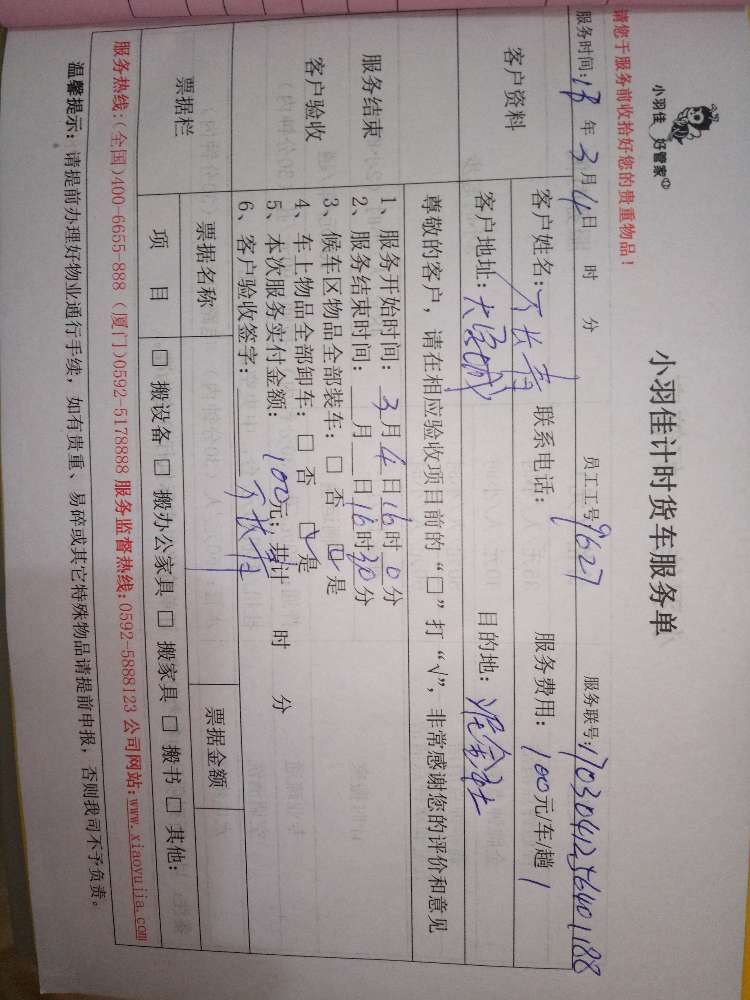 小羽佳 好管家
小羽佳计时货车服务单
请您于服务前收拾好您的贵重物品！
员工工号9627 服务联号:703041256401188
服务时间: 年3月4日 时 分
客户资料
客户姓名:万长青 联系电话: 服务费用: 100元/车/趟
客户地址: 目的地:
尊敬的客户，请在相应验收项目前的“□”打“√”，非常感谢您的评价和意见
服务结束
客户验收
1、服务开始时间: 3月4日16时0分
2、服务结束时间: 月 日16时30分
3、候车区物品全部装车: □ 否 ☑ 是
4、车上物品全部卸车: □ 否 ☑ 是
5、本次服务实付金额: 100元; 共计 时 分
6、客户验收签字: 万长青
票据栏
票据名称 票据金额
项 目 □ 搬设备 □ 搬办公家具 □ 搬家具 □ 搬书 □ 其他:
服务热线:(全国)400-6655-888 (厦门)0592-5178888 服务监督热线:0592-5888123 公司网站:www.xiaoyujia.com
温馨提示: 请提前办理好物业通行手续，如有贵重、易碎或其它特殊物品请提前申报，否则我司不予负责。